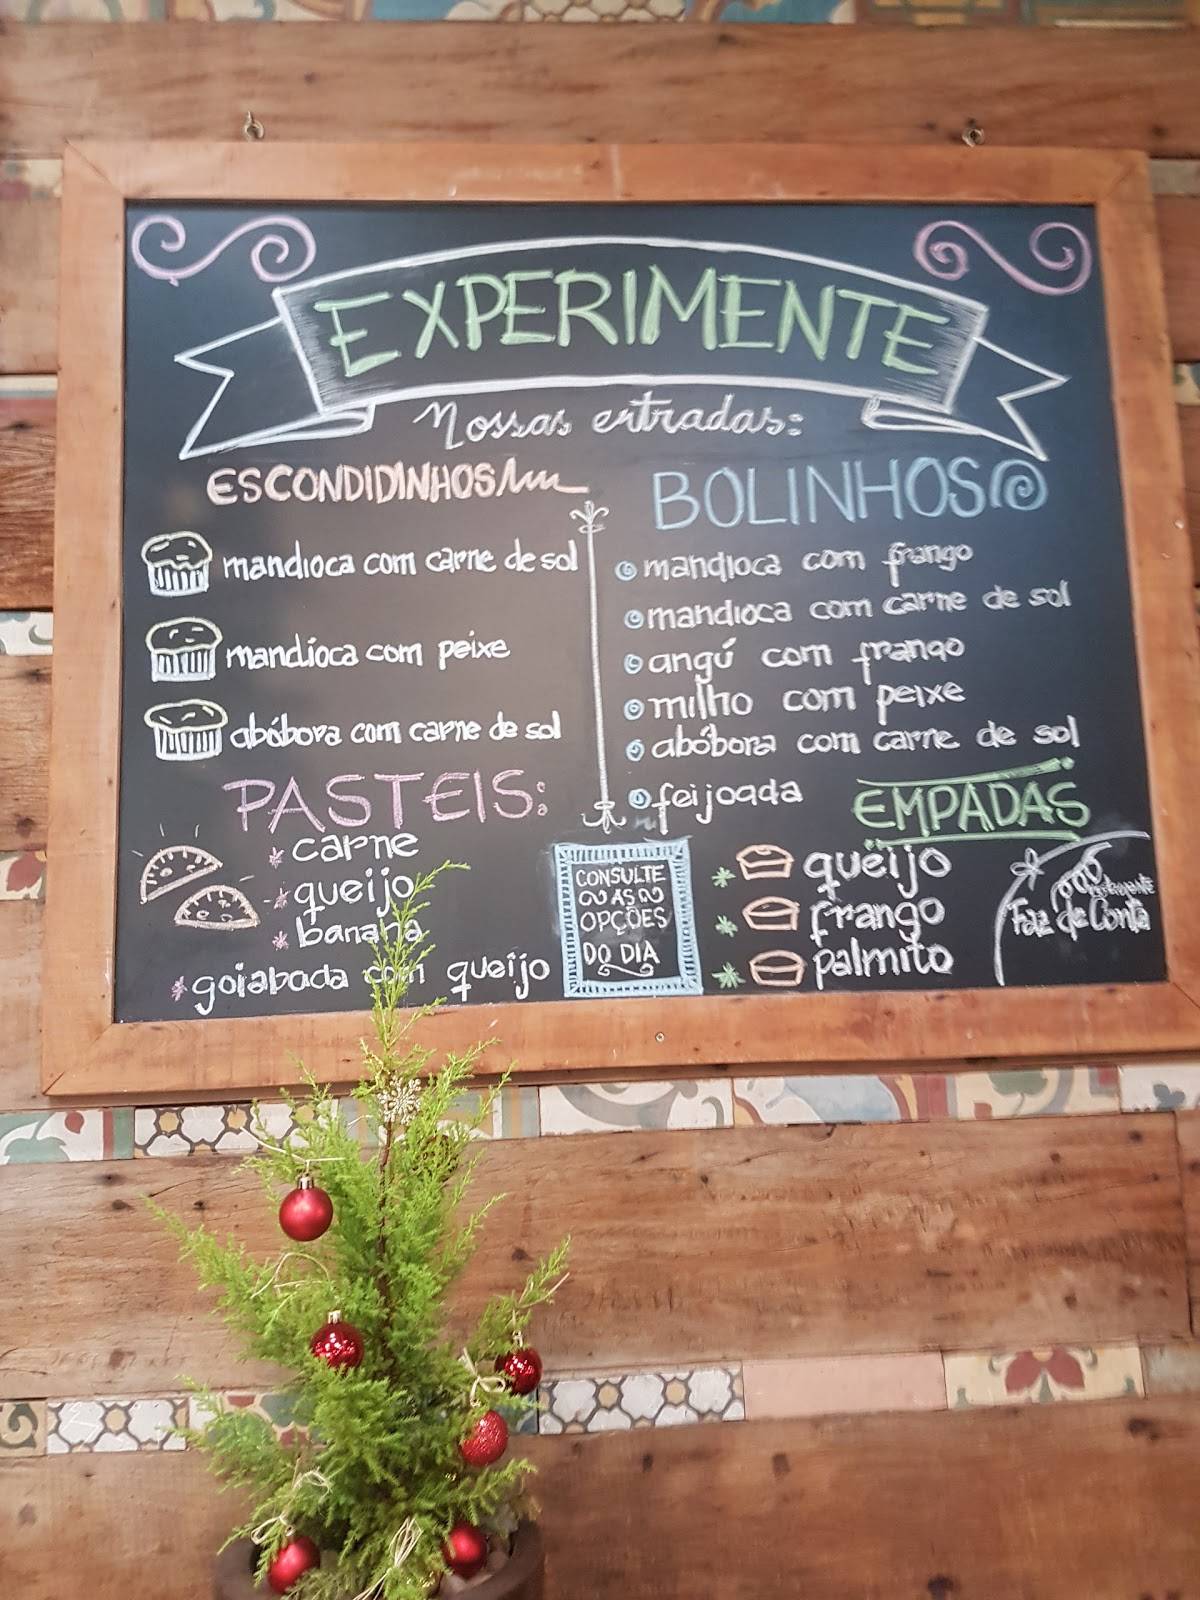 EXPERIMENTE
Nossas entradas:
ESCONDIDINHOS
mandioca com carne de sol
mandioca com peixe
abóbora com carne de sol
BOLINHOS
mandioca com frango
mandioca com carne de sol
angú com frango
milho com peixe
abóbora com carne de sol
feijoada
PASTEIS:
carne
queijo
banana
goiabada com queijo
CONSULTE
AS
OPÇÕES
DO DIA
EMPADAS
queijo
frango
palmito
Faz de Conta